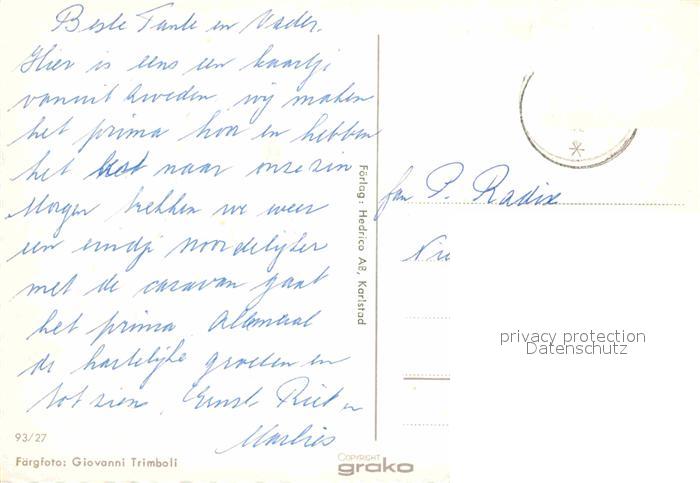 Beste Tante en Vader.
Hier is eens een kaartje
vanuit Zweden, wij maken
het prima hoor en hebben
het best naar onze zin
Morgen trekken we weer
een eindje noordelijker
met de caravan gaat
het prima. Allemaal
de hartelijke groeten en
tot ziens, Ernst Riet en
Marlies
fam P. Radix
Nie
Förlag: Hedrico AB, Karlstad
privacy protection
Datenschutz
93/27
Färgfoto: Giovanni Trimboli
COPYRIGHT
grako